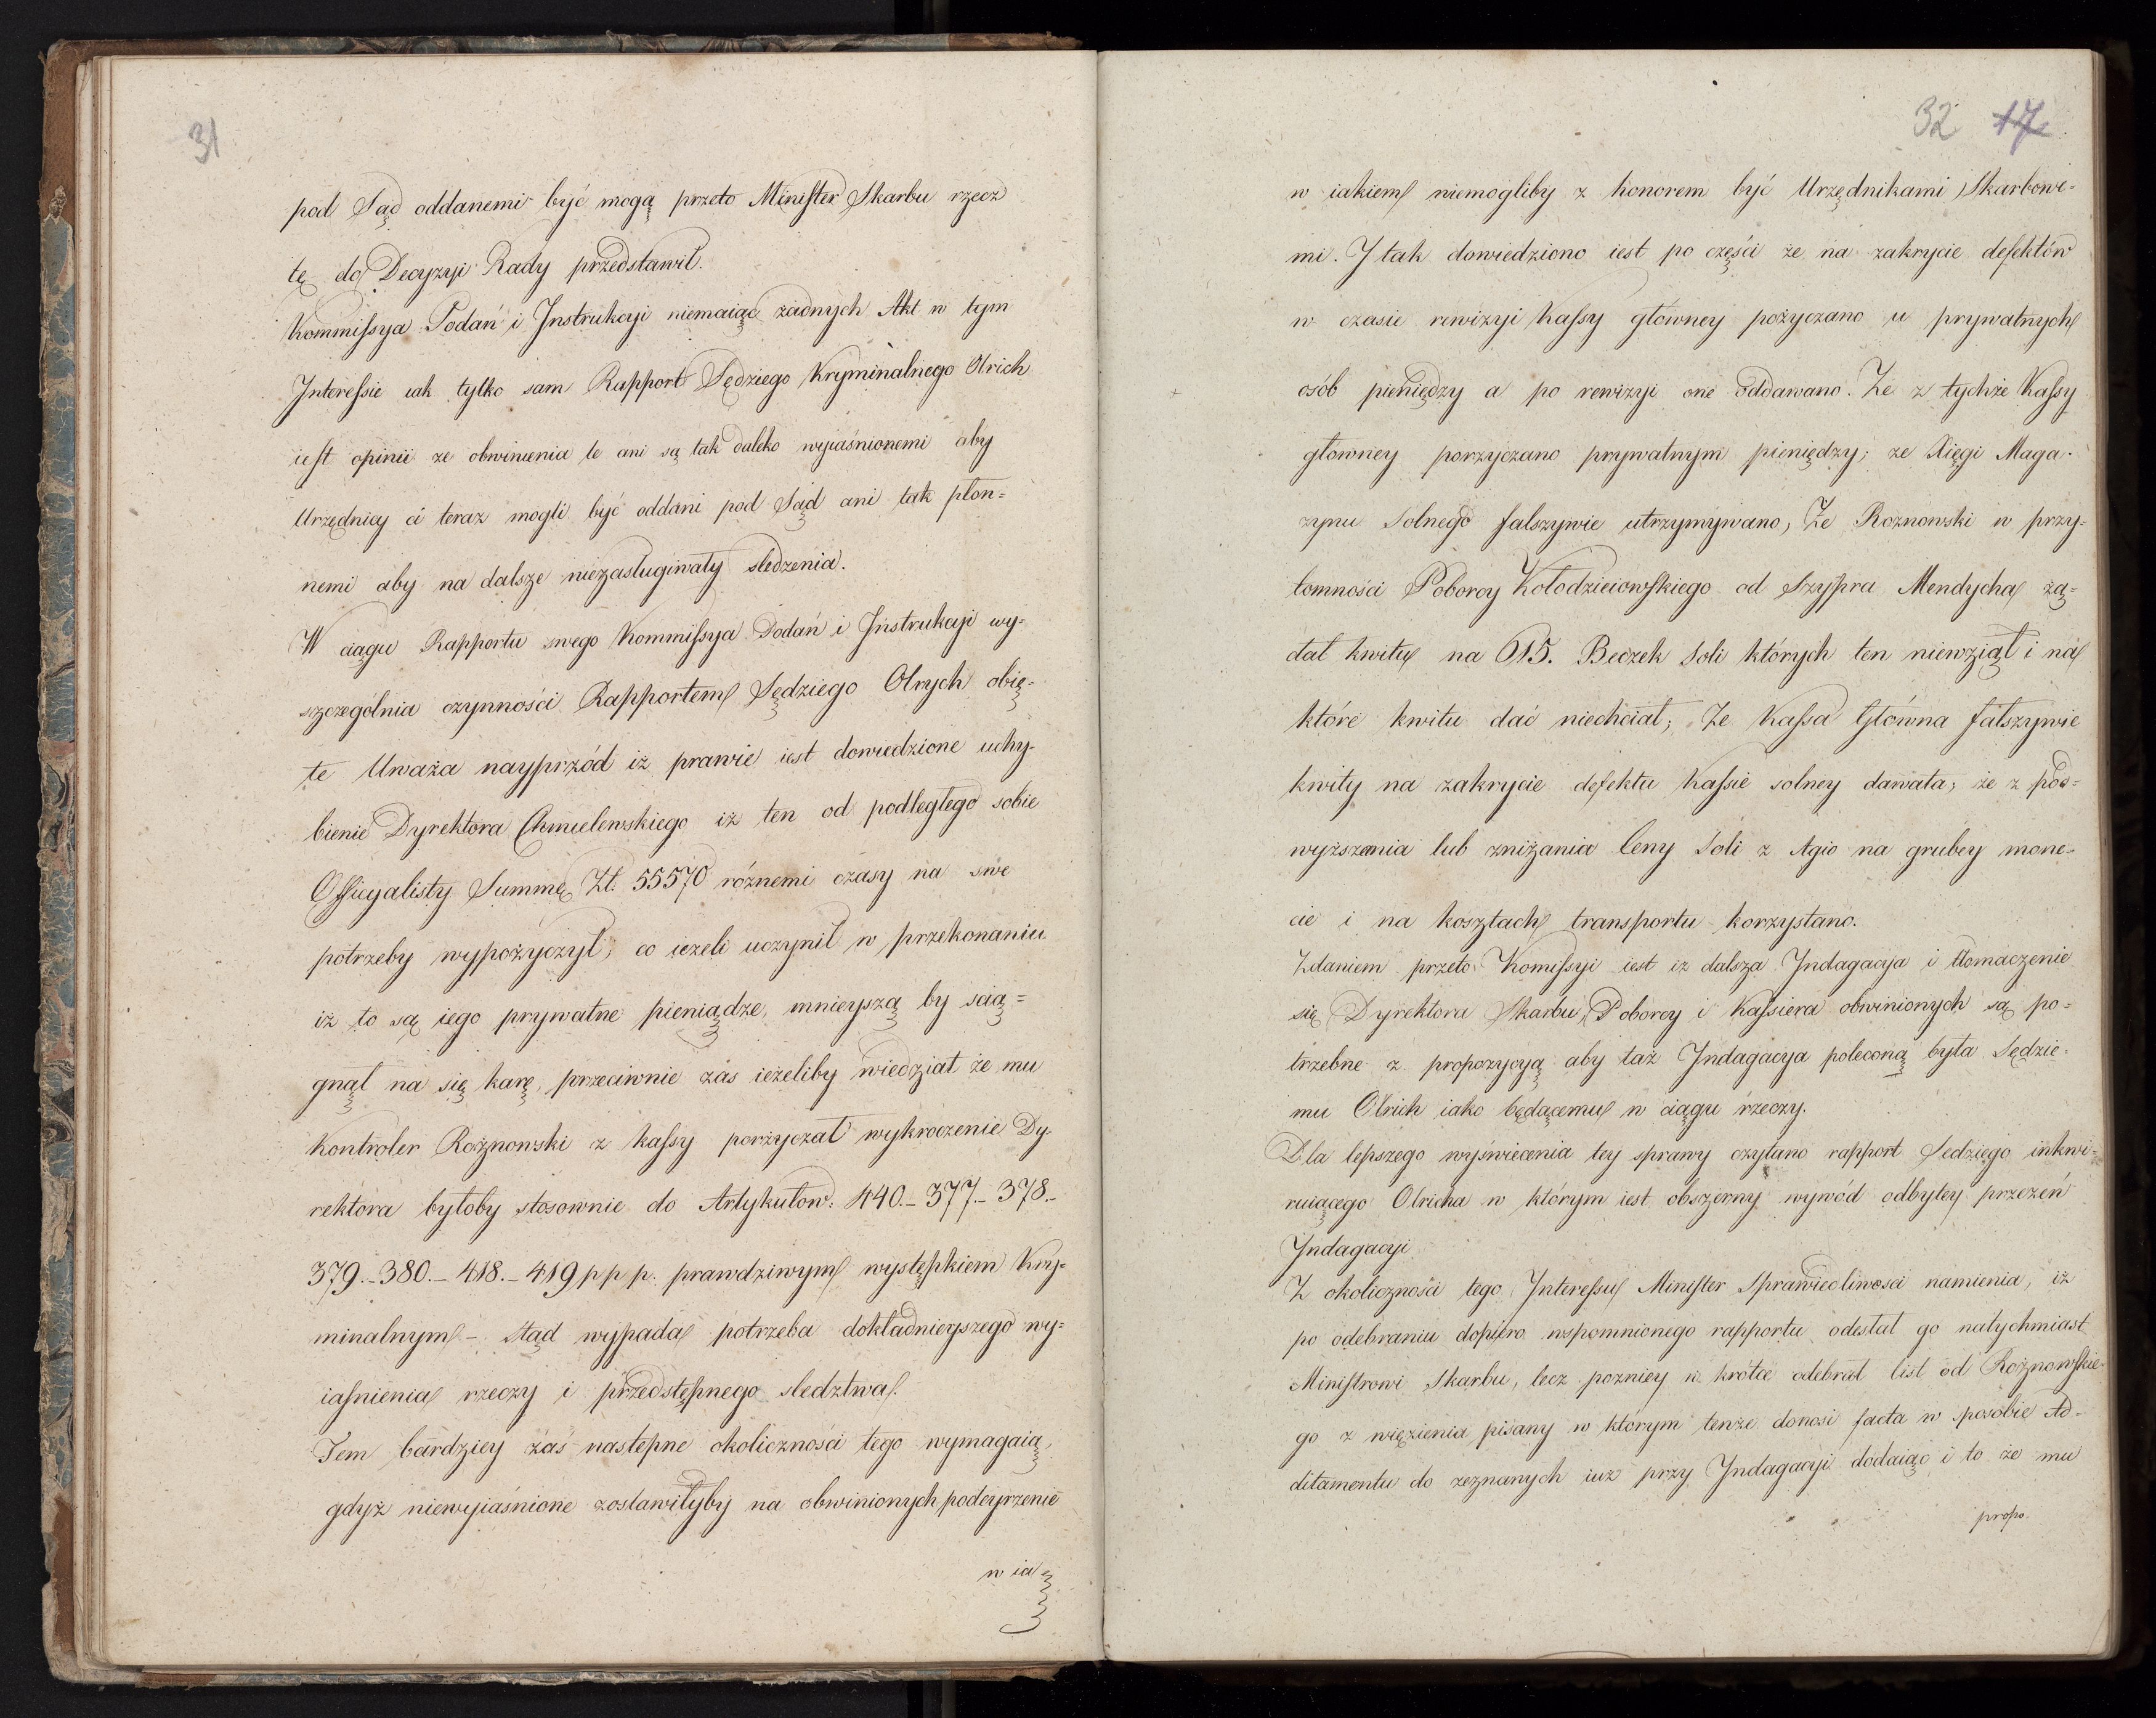 31
pod Sąd oddanemi być mogą przeto Minister Skarbu rzecz
tę do Decyzyi Rady przedstawił.
Kommissya Podań i Instrukcyi niemaiąc żadnych Akt w tym
Interessie iak tylko sam Rapport Sędziego Kryminalnego Olrich
iest opinii ze obwinienia te ani są tak daleko wyiaśnionemi aby
Urzędnicy ci teraz mogli być oddani pod Sąd ani tak płon=
nemi aby na dalsze niezasługiwały sledzenia.
W ciągu Rapportu swego Kommissya Podań i Instrukcyi wy=
szczególnia czynności Rapportem Sędziego Olrych obię=
te Uważa nayprzód iż prawie iest dowiedzione uchy=
bienie Dyrektora Chmielewskiego iż ten od podległego sobie
Officyalisty Summę Zł: 55570 różnemi czasy na swe
potrzeby wypożyczył; co ieżeli uczynił w przekonaniu
iż to są iego prywatne pieniądze, mnieyszą by scią=
gnął na się karę, przeciwnie zaś ieżeliby wiedział że mu
Kontroler Rożnowski z kassy porżyczał wykroczenie Dy=
rektora byłoby stosownie do Artykułow: 440.- 377.- 378.-
379.- 380.- 418.- 419 p p p. prawdziwym występkiem Kry=
minalnym - stąd wypada potrzeba dokładnieyszego wy=
iaśnienia rzeczy i przedstępnego sledztwa.
Tem bardziey zaś następne okoliczności tego wymagaią,
gdyż niewyiaśnione zostawiłyby na obwinionych podeyrzenie
w ia=
32 17
w iakiem niemogliby z honorem być Urzędnikami Skarbowe=
mi. I tak dowiedziono iest po części że na zakrycie defektów
w czasie rewizyi Kassy główney pożyczano u prywatnych
osób pieniędzy a po rewizyi one oddawano. Że z tychże Kassy
główney porzyczano prywatnym pieniędzy; że Xięgi Maga=
zynu Solnego fałszywie utrzymywano, Że Rożnowski w przy=
tomności Poborcy Kołodzieiowskiego od Szypra Mendycha żą=
dał kwitu na 615. Beczek Soli których ten niewziął i na
które kwitu dać niechciał; Że Kassa Główna fałszywie
kwity na zakrycie defektu Kassie solney dawała; że z pod=
wyższania lub zniżania Ceny Soli z Agio na grubey mone=
cie i na kosztach transportu korzystano.
Zdaniem przeto Komissyi iest iż dalsza Indagacya i tłomaczenie
się Dyrektora Skarbu, Poborcy i Kassiera obwinionych są po=
trzebne z propozycyą aby taż Indagacya poleconą była Sędzie=
mu Olrich iako będącemu w ciągu rzeczy.
Dla lepszego wyświecenia tey sprawy czytano rapport Sedziego inkwi=
ruiącego Olricha w którym iest obszerny wywód odbytey przezeń
Indagacyi.
Z okoliczności tego Interessu Minister Sprawiedliwości namienia, iż
po odebraniu dopiero wspomnionego rapportu odesłał go natychmiast
Ministrowi Skarbu, lecz pozniey w krótce odebrał list od Rożnowskie=
go z więzienia pisany w którym tenże donosi facta w sposobie Ad=
ditamentu do zeznanych iuż przy Indagacyi dodaiąc i to że mu
propo